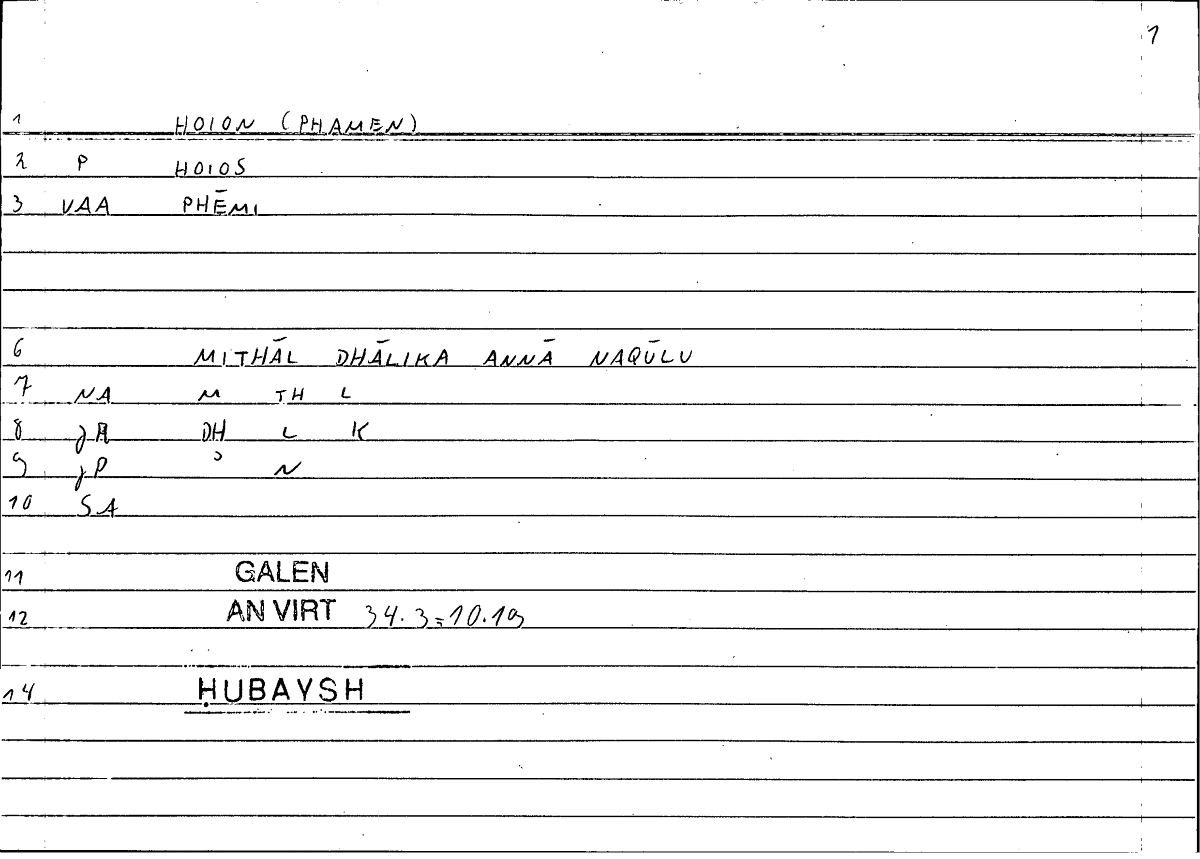 1
1 HOION (PHAMEN)
2 P HOIOS
3 VAA PHĒMI
6 MITHĀL DHĀLIKA ANNĀ NAQŪLU
7 NA M TH L
8 JA DH L K
9 JP ʾ N
10 SA
11 GALEN
12 AN VIRT 34.3=10.19
14 ḤUBAYSH